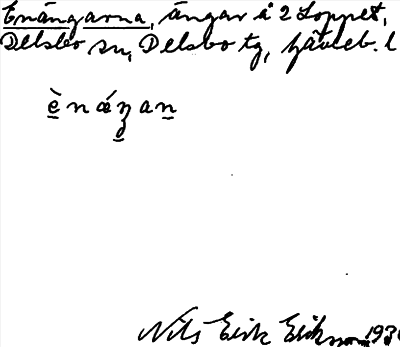 Enångarna, ängar å 2 Loppet,
Delsbo sn, Delsbo tg, Gävleb. l
ènǽŋan
Nils Eirk Erikson 193